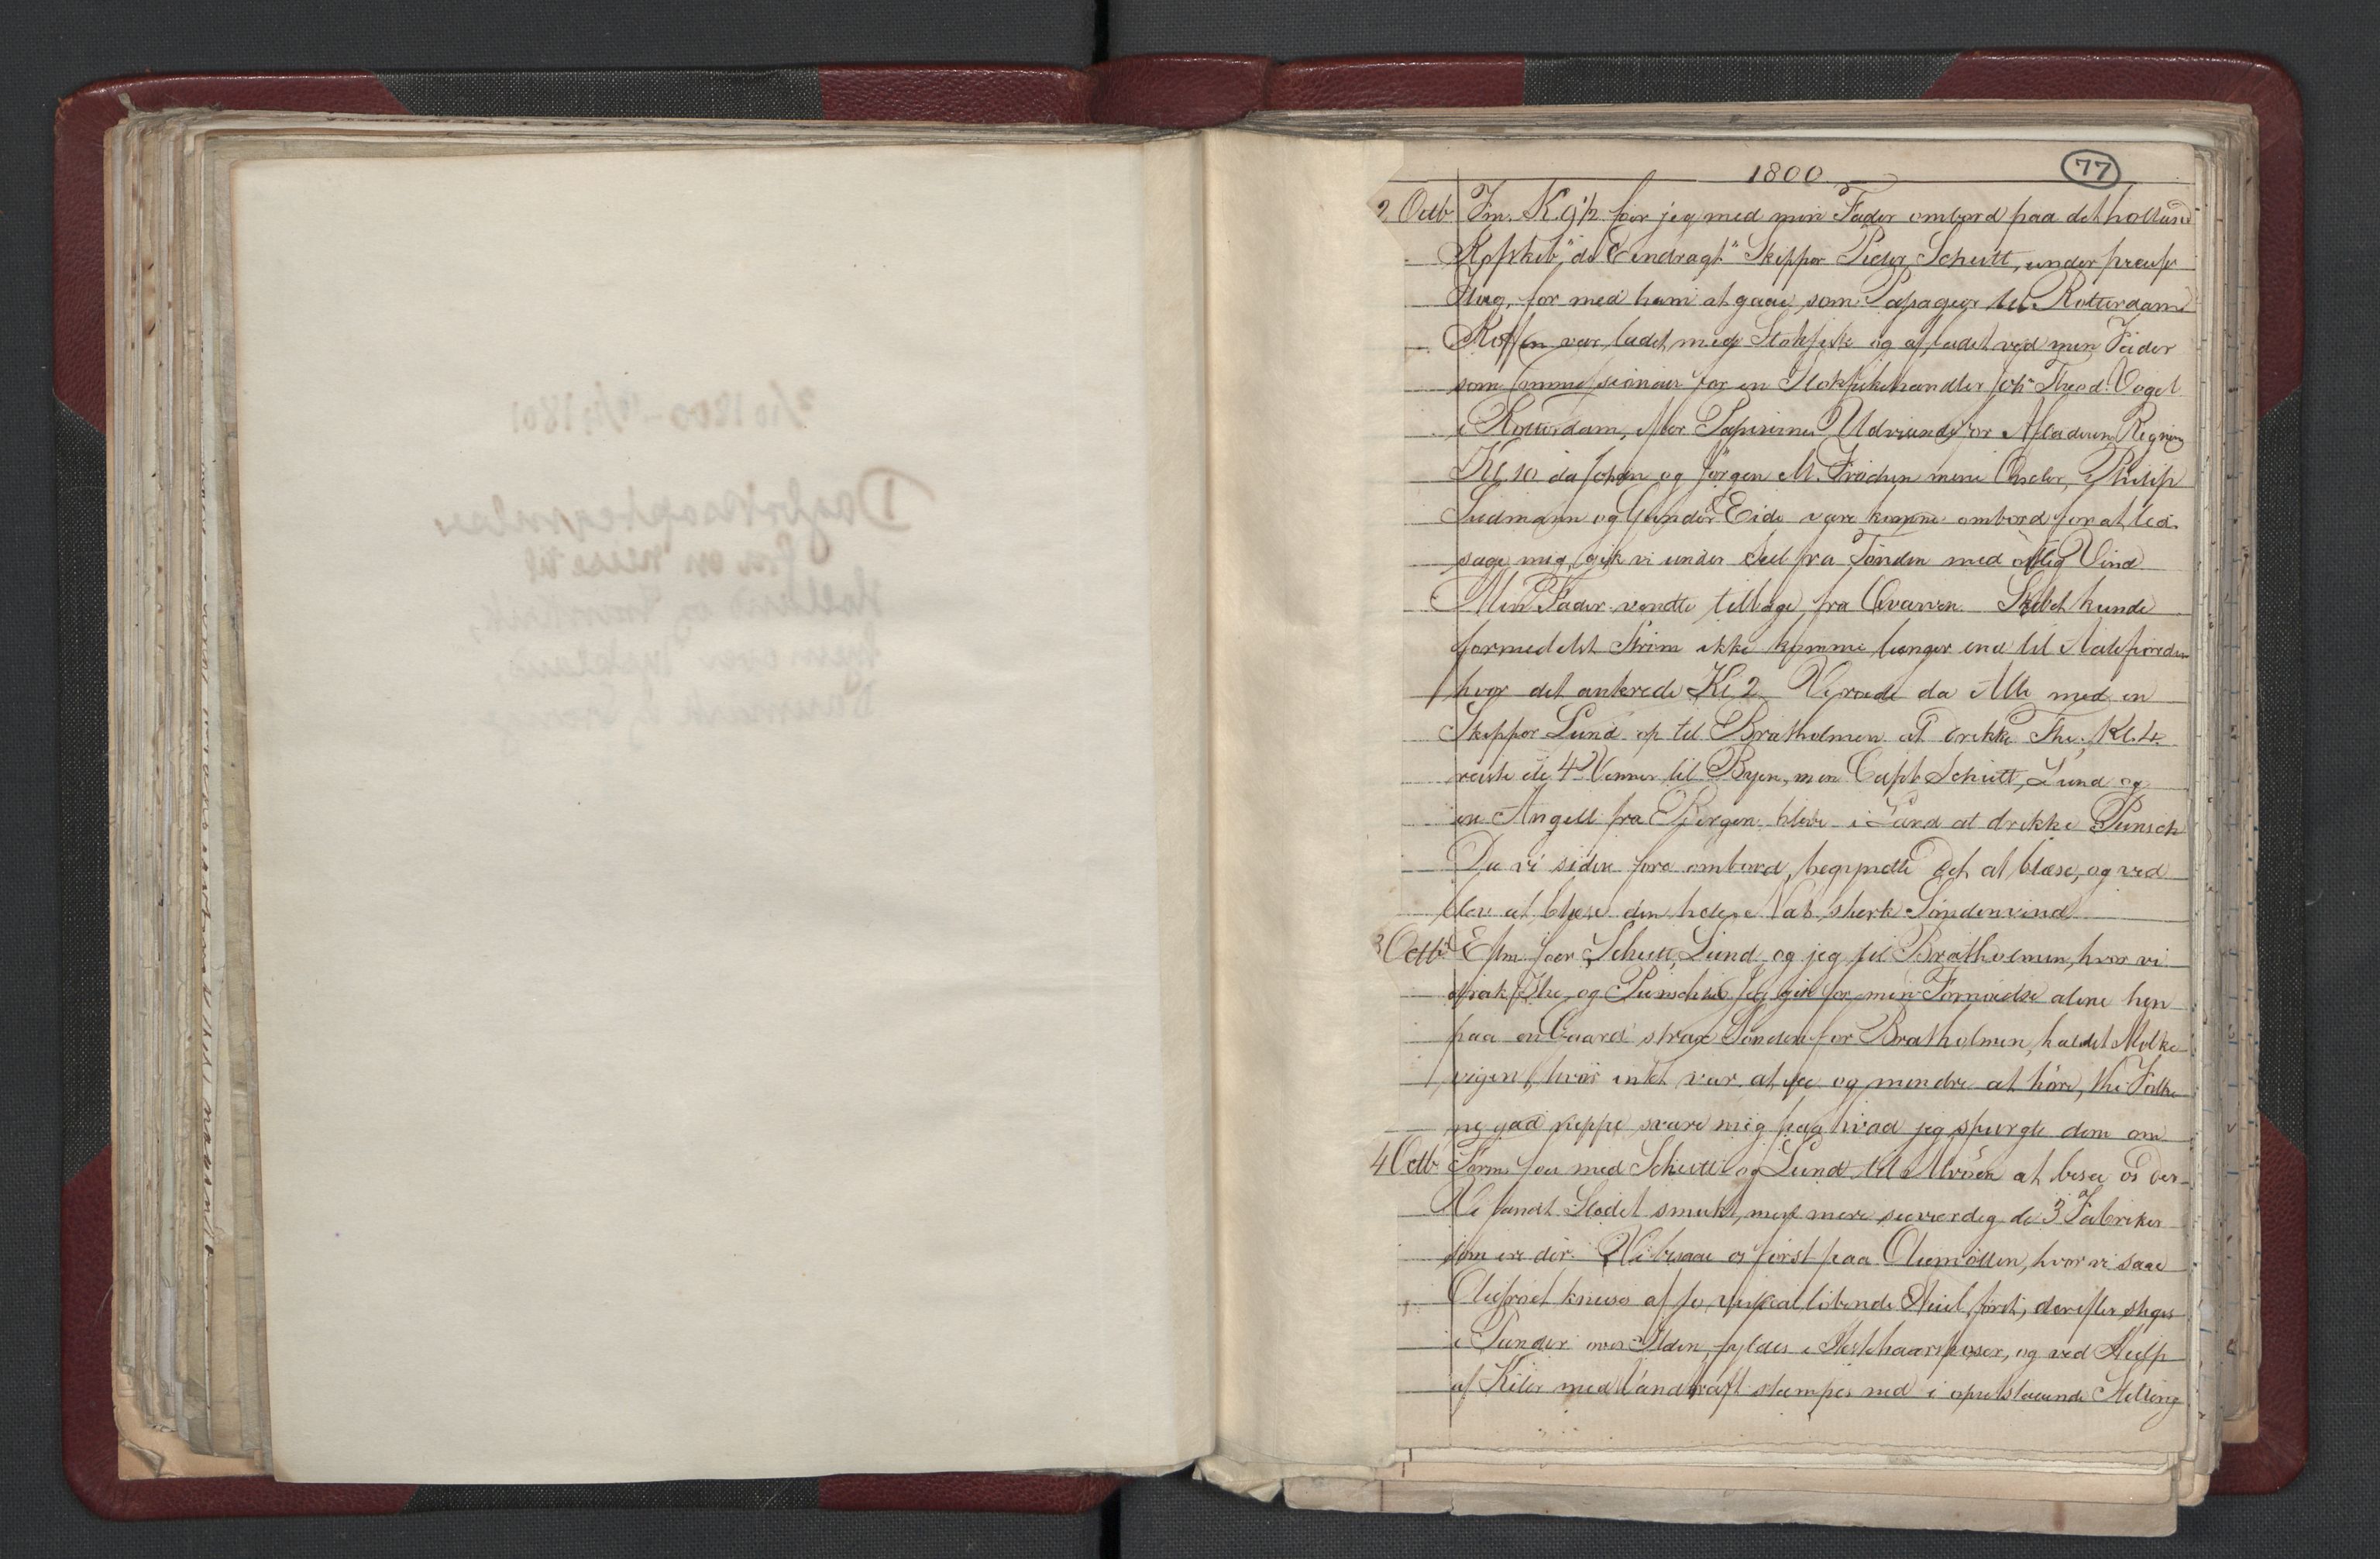 1800
77
2 Octb Fm. Kl 9½ foer jeg med min Fader ombord paa det holland
Kofskib "de Eendragt" Skipper Peder Schutt, under preusf
Flag, for med ham at gaae som Pasageer til Rotterdam
Koffen var ladet med Stokfisk og afladet ved min Fader
som Commissionair for en Stokfiskehandler Joh. Theod. Vogel
i Rotterdam, efter Papirernes Udvisende for Afladeren Regning
Kl. 10 da Johan og Jörgen M. Frörhen mine Onkler, Philip
Siedmann og Gunder Eide vare komne ombord for at led
sage mig, gik vi under Seil fra Tönden med östlig Vind
Min Fader vendte tilbage fra Qvarven. Skibet kunde
formedelst Ström ikke komme længer end til
hvor det ankrede Kl 2. Vi roede da Alle med en
Skipper Lund op til Bratholmen at drikke The. Kl. 4
reiste de 4 Venner til Byen, men Capt Schutt, Lund og
en Angell fra Bergen bleve i Land at drikke Punsch
Da vi siden fore ombord, begyndte det at blæse, og ved
blev at blæse den hele Nat sterk Söndenvind
3 Octbr Eftm. foer Schutt, Lund og jeg til Bratholmen, hvor vi
drak The og Punsch. Jeg gik for min Fornöielse alene hen
paa en Gaard strax Sönden for Bratholmen, kaldet Mölke
vigen, hvor intet var at see og mindre at höre, thi Folke
ne gad neppe svare mig paa hvad jeg spurgte dem om
4 Octb Form. foer med Schutt og Lund til Alvöen at besee os der
Vi fandt Stedet smukt, men mere seeværdig de 3 Fabriker
som ere der. Vi besaae os först paa Oliemöllen, hvor vi saae
Oliefröet knuse af to vertical löbende Hiul först, derefter steges
i Pander over Ilden, fyldes i Hestehaarsposer, og ved Hielp
af Kiler med Vandkraft stampes ned i opretstaaende Stilling